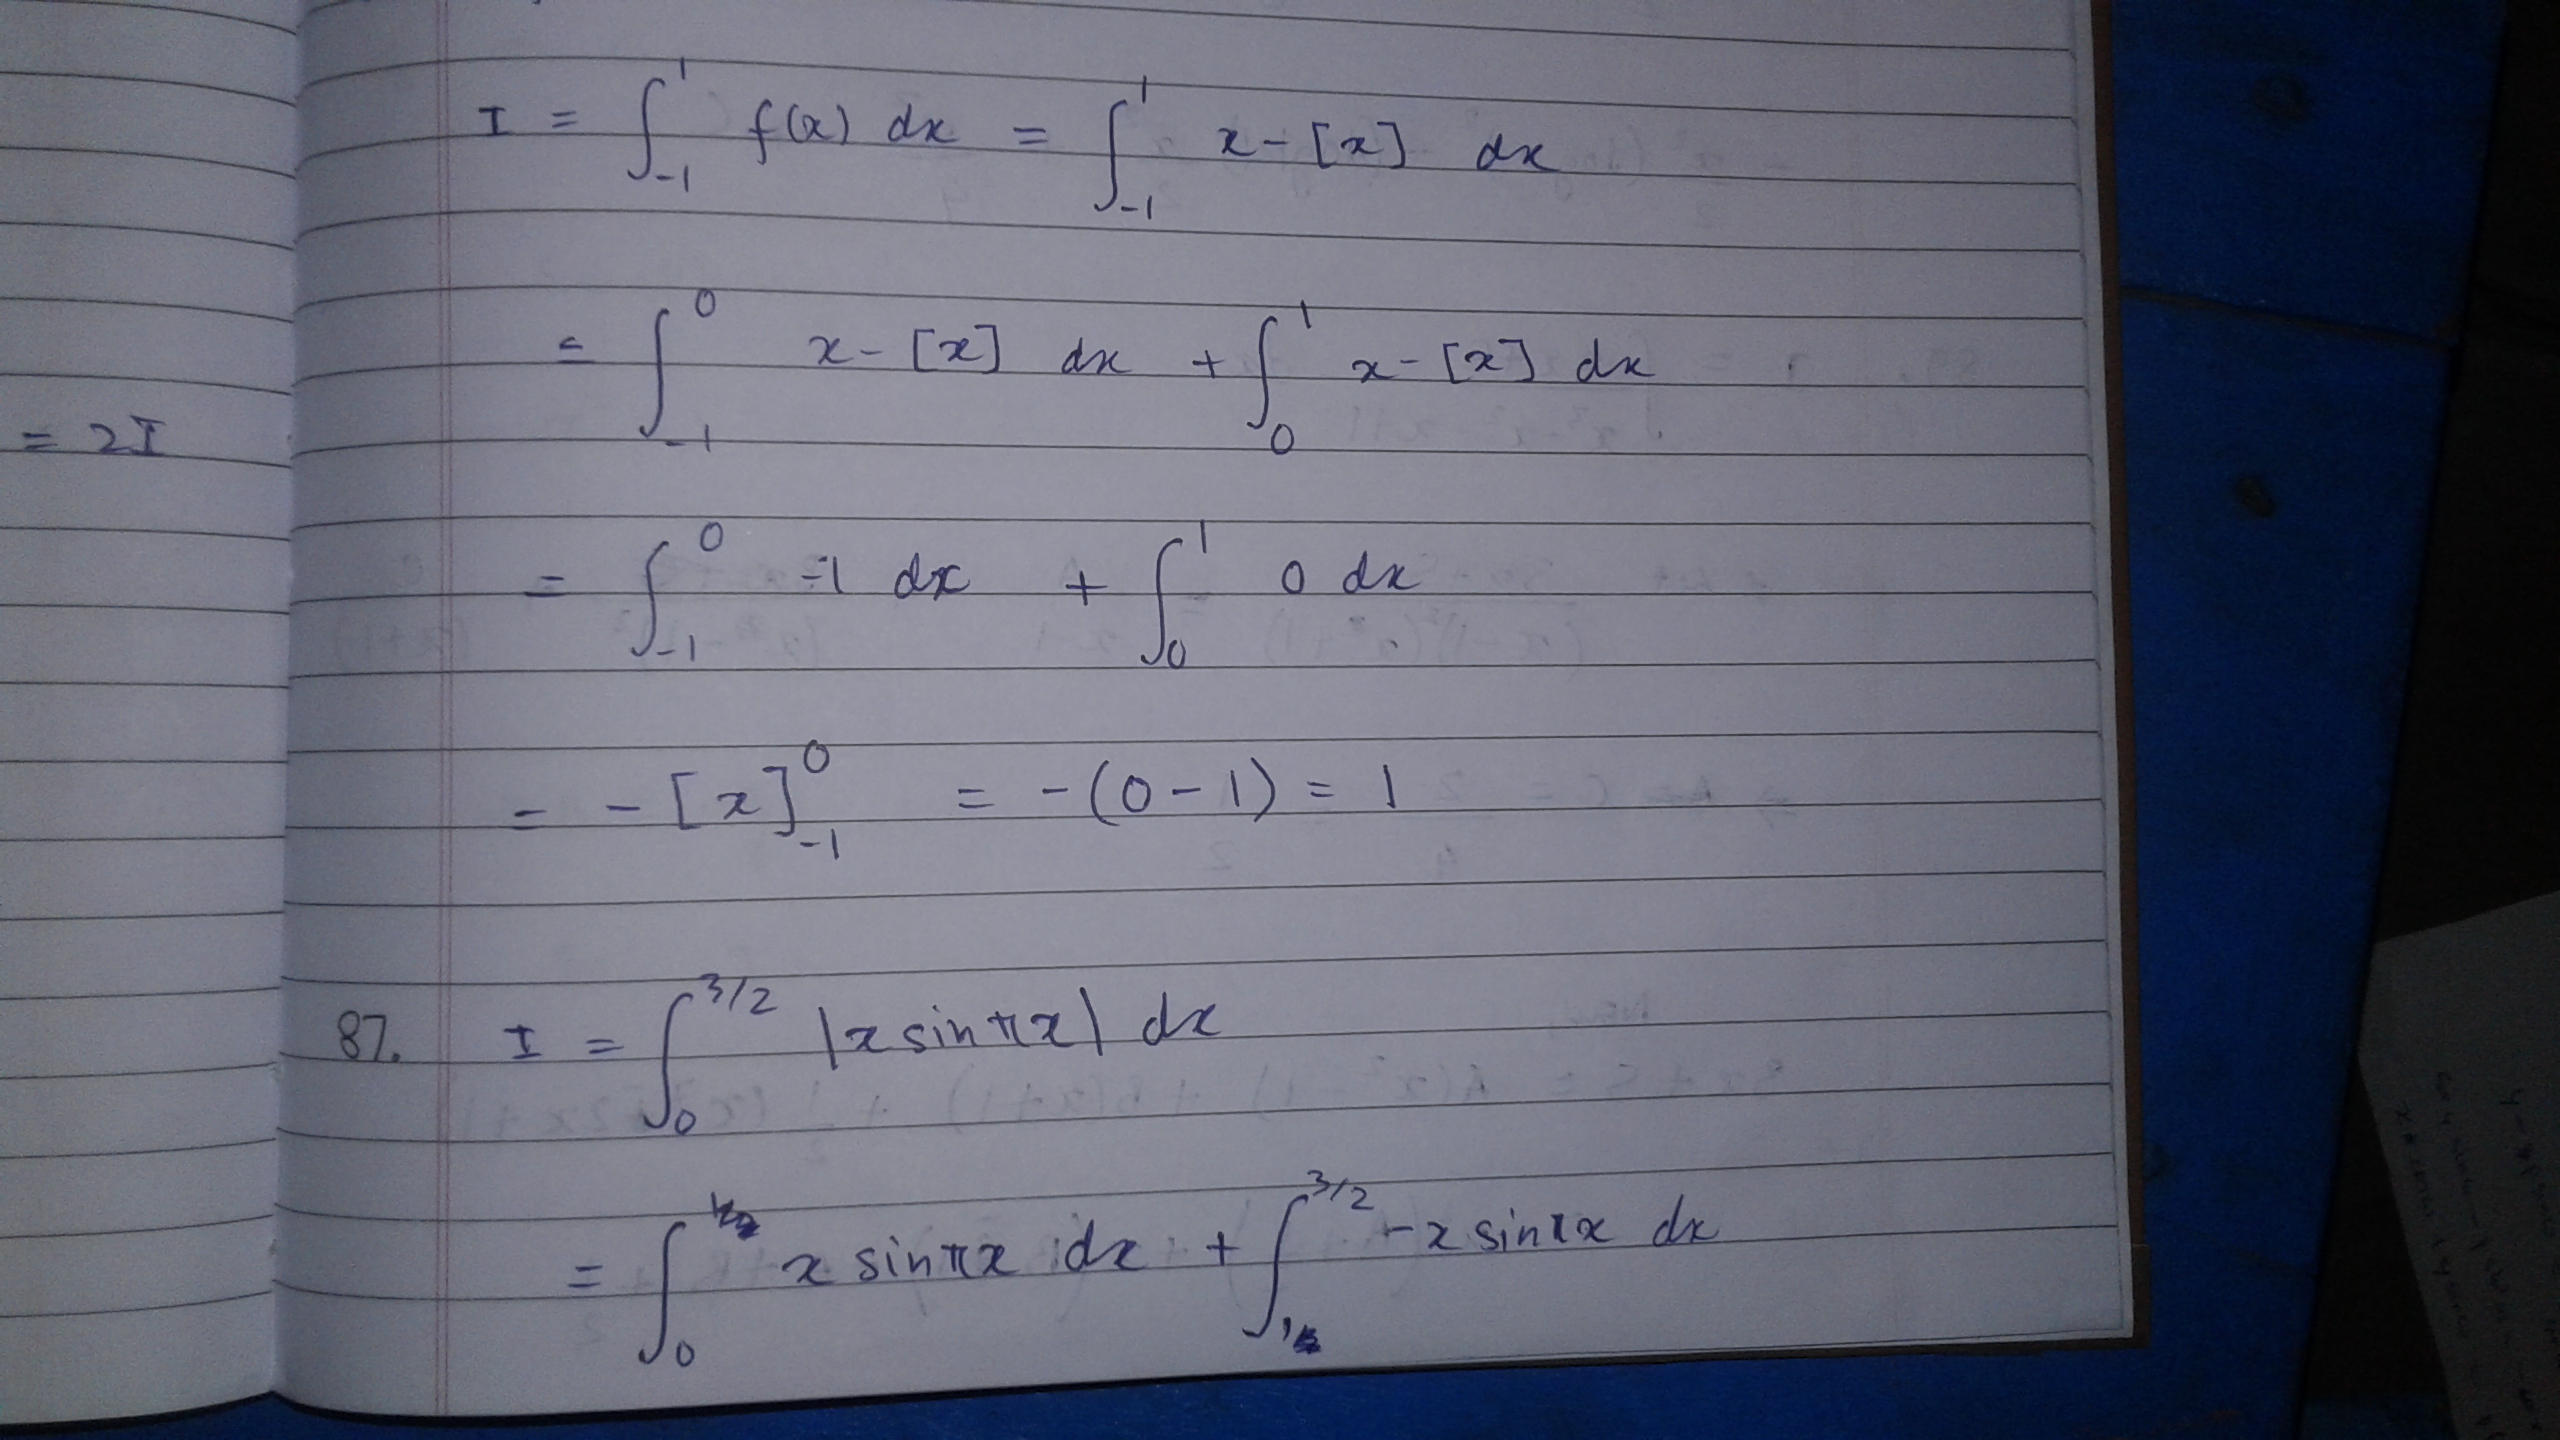 = 2I
I = ∫_{-1}^{1} f(x) dx = ∫_{-1}^{1} x - [x] dx
= ∫_{-1}^{0} x - [x] dx + ∫_{0}^{1} x - [x] dx
= ∫_{-1}^{0} -1 dx + ∫_{0}^{1} 0 dx
= - [x]_{-1}^{0} = -(0 - 1) = 1
87. I = ∫_{0}^{3/2} |x sin πx| dx
= ∫_{0} x sin πx dx + ∫^{3/2} -x sin πx dx